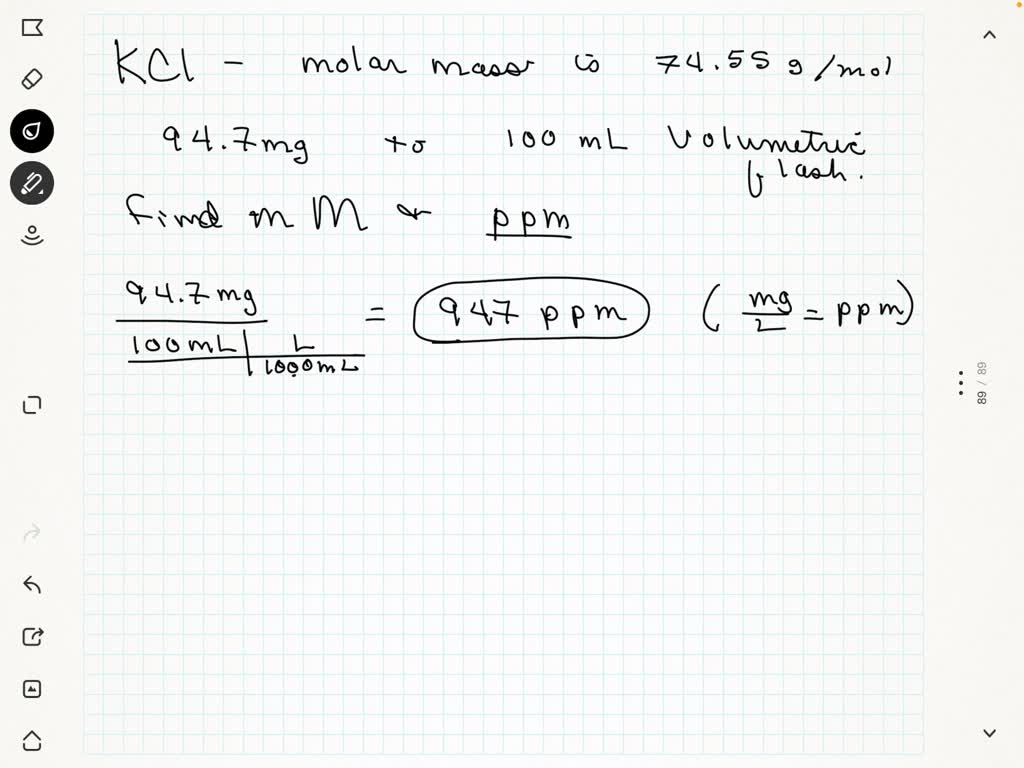 KCl - molar mass is 74.55 g/mol
94.7mg to 100 mL Volumetric flask.
Find mM or ppm
94.7 mg
= 947 ppm ( mg/L = ppm)
100mL | L
1000mL
89 / 89